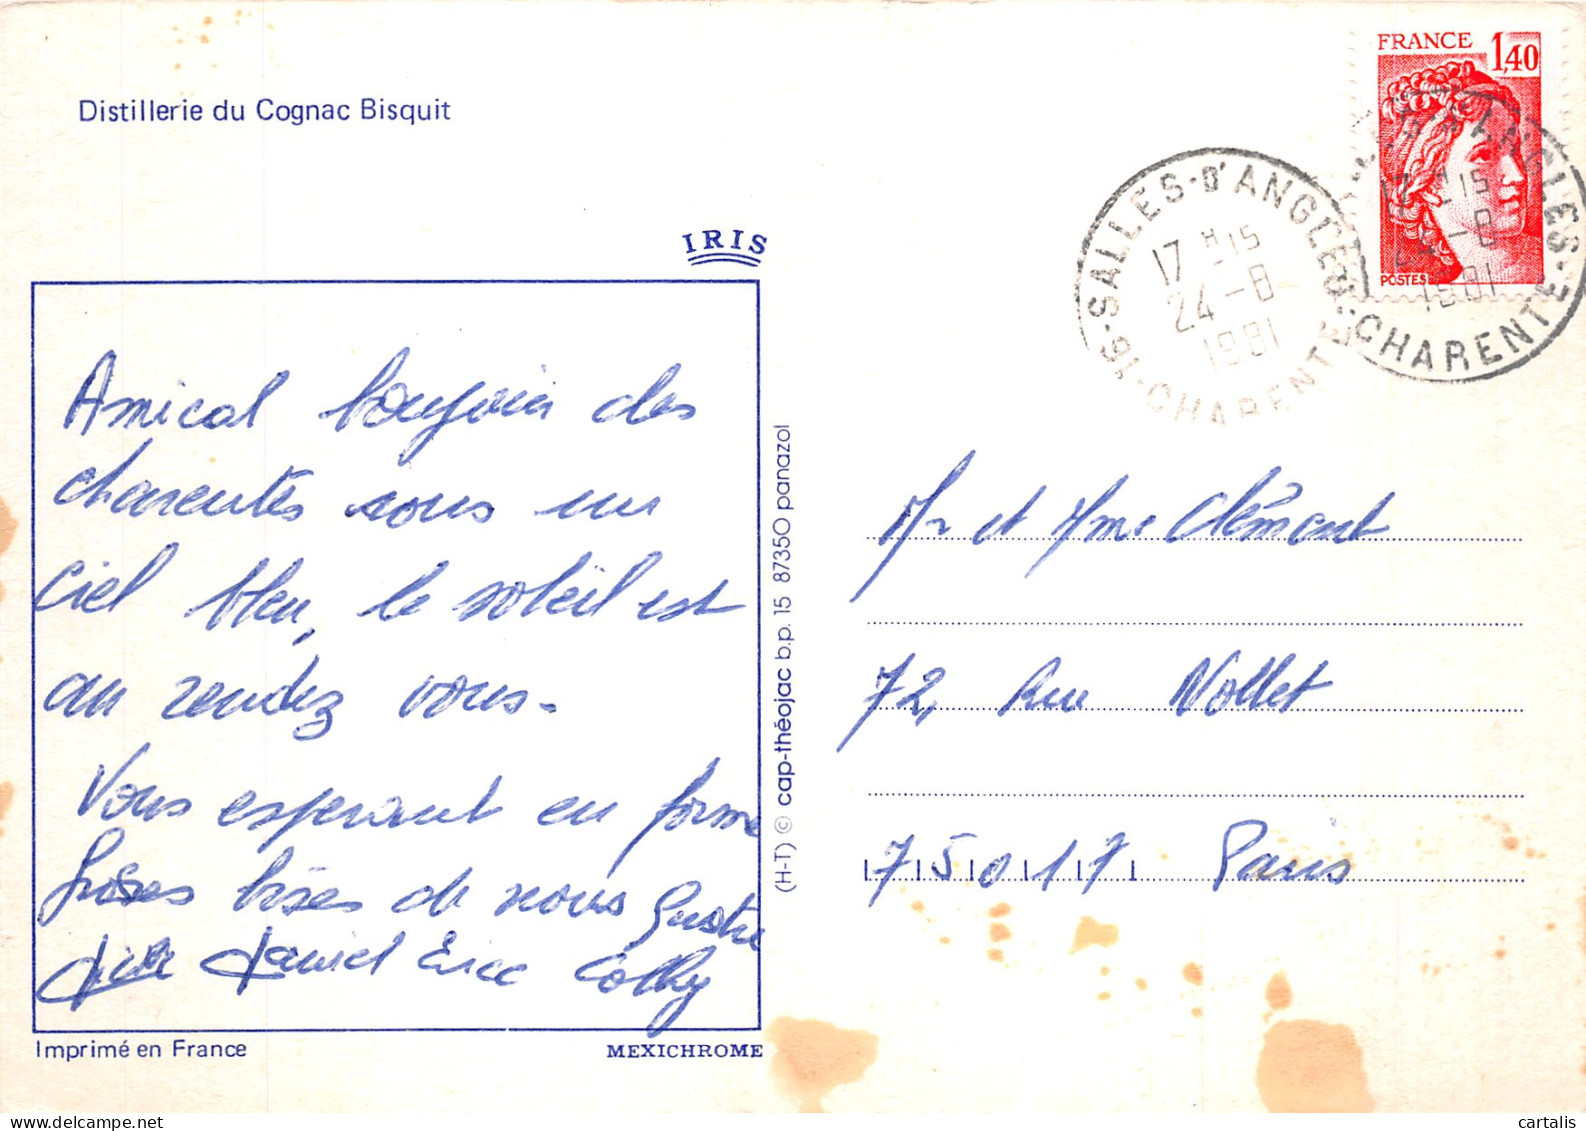 FRANCE 1,40
POSTES
Distillerie du Cognac Bisquit
IRIS
16-SALLES-D'ANGLES
17H15
24-8
1981
CHARENTE
16-SALLES-D'ANGLES
17H15
24-8
1981
CHARENTE
Amical bonjour des
charentes sous un
ciel bleu, le soleil est
au rendez vous.
Vous esperant en forme
Grosses bises de nous quatre
Daniel Eric Cathy
(H-T) © cap-théojac b.p. 15 87350 panazol
Mr et Mme Clément
72, Rue Nollet
75017 Paris
Imprimé en France
MEXICHROME
cartalis